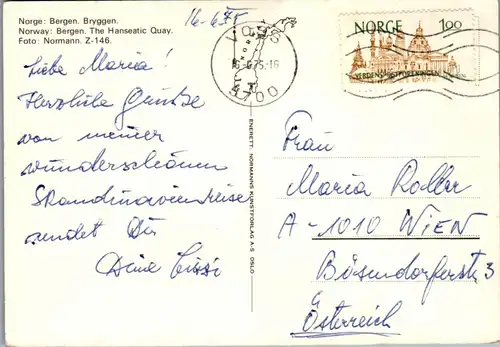 Norge: Bergen. Bryggen.
Norway: Bergen. The Hanseatic Quay.
Foto: Normann. Z-146.
16-6 75
NORGE 1.00
VERDENSPOSTFORENINGEN
5700
Liebe Maria!
Herzliche Grüße
von meiner
wunderschönen
Skandinavienreise
sendet Dir
Deine Cissi
ENERETT: NORMANNS KUNSTFORLAG A.S OSLO
Frau
Maria Roller
A-1010 WIEN
Bösendorferstr 3
Österreich